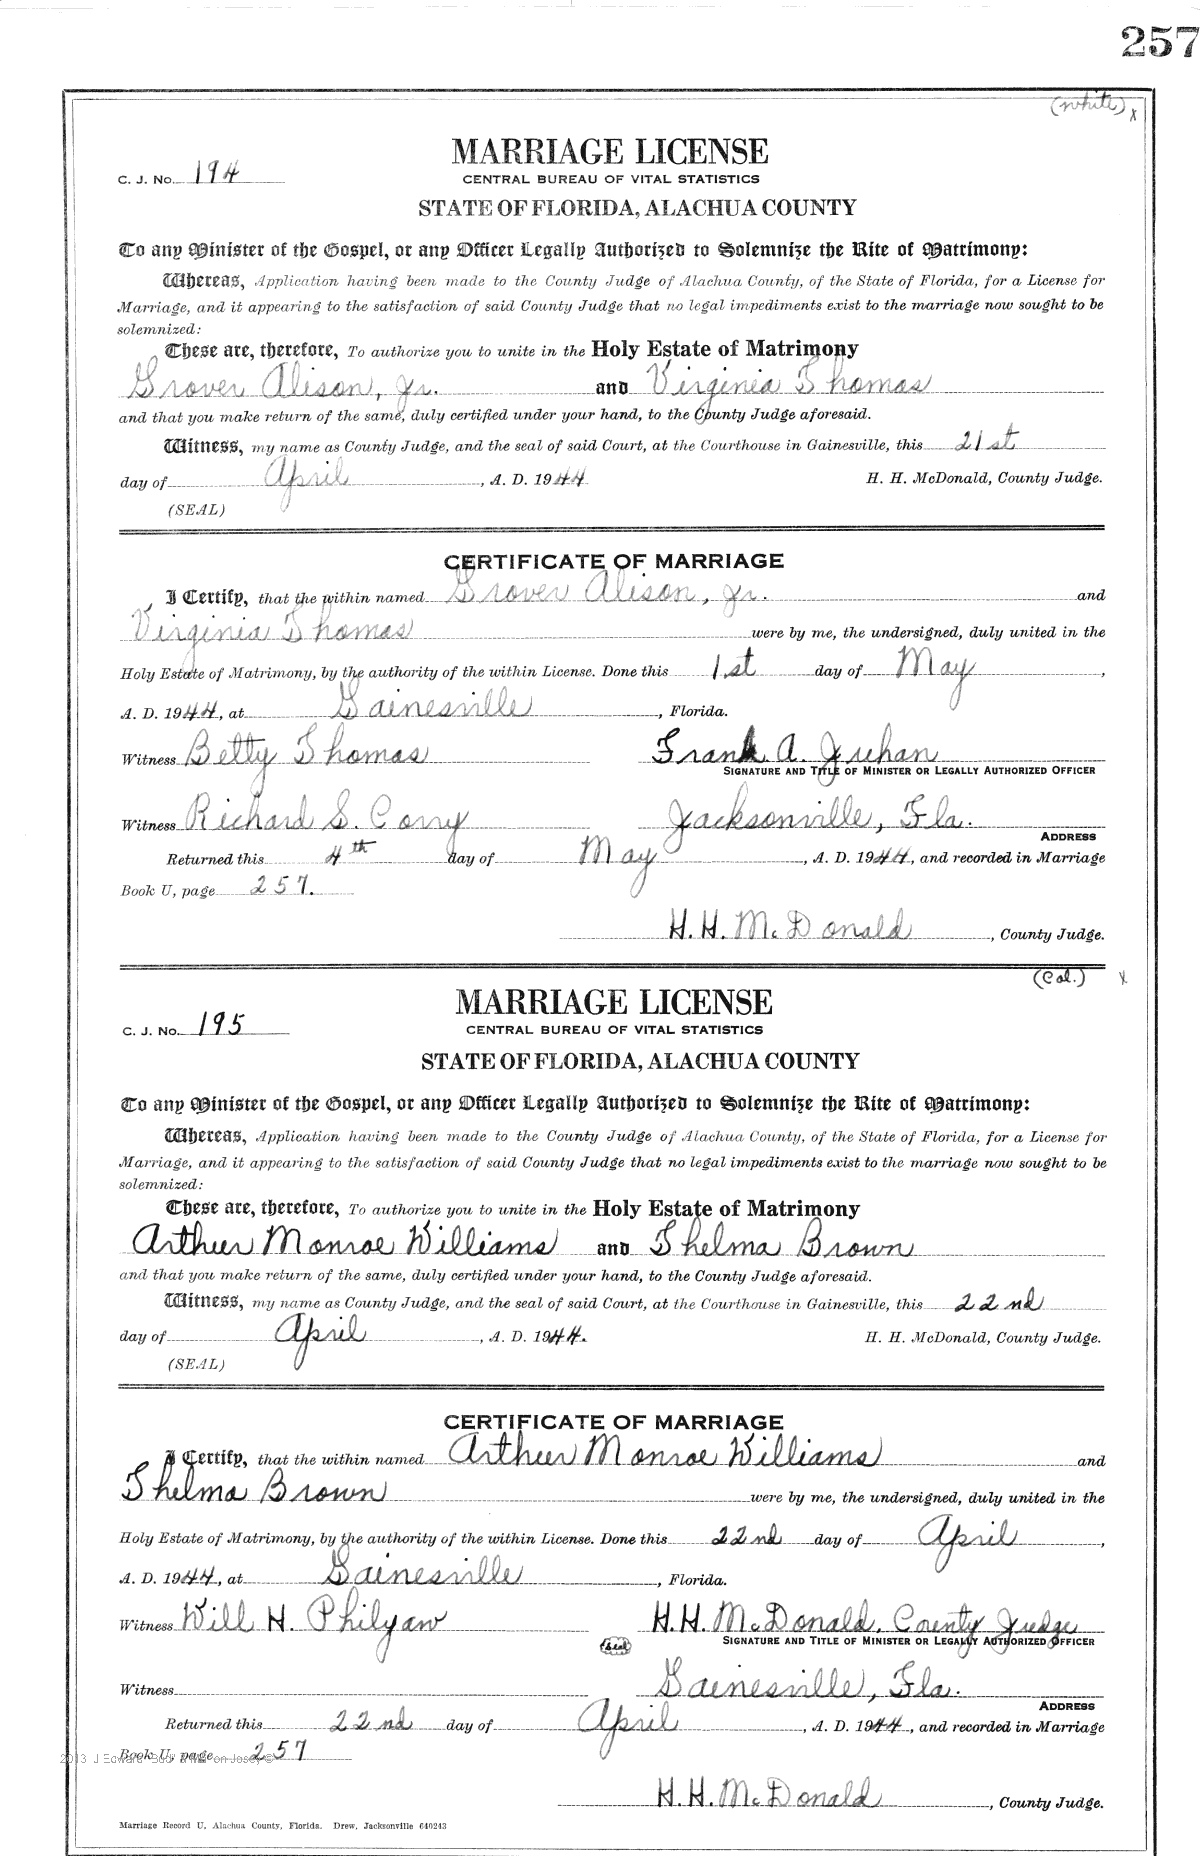 257
(white) x
MARRIAGE LICENSE
C. J. No. 194
CENTRAL BUREAU OF VITAL STATISTICS
STATE OF FLORIDA, ALACHUA COUNTY
To any Minister of the Gospel, or any Officer Legally Authorized to Solemnize the Rite of Matrimony:
Whereas, Application having been made to the County Judge of Alachua County, of the State of Florida, for a License for
Marriage, and it appearing to the satisfaction of said County Judge that no legal impediments exist to the marriage now sought to be
solemnized:
These are, therefore, To authorize you to unite in the Holy Estate of Matrimony
Grover Alison, Jr. and Virginia Thomas
and that you make return of the same, duly certified under your hand, to the County Judge aforesaid.
Witness, my name as County Judge, and the seal of said Court, at the Courthouse in Gainesville, this 21st
day of April, A. D. 1944 H. H. McDonald, County Judge.
(SEAL)
CERTIFICATE OF MARRIAGE
I Certify, that the within named Grover Alison, Jr. and
Virginia Thomas were by me, the undersigned, duly united in the
Holy Estate of Matrimony, by the authority of the within License. Done this 1st day of May,
A. D. 1944, at Gainesville, Florida.
Witness Betty Thomas Frank A. Juhan
SIGNATURE AND TITLE OF MINISTER OR LEGALLY AUTHORIZED OFFICER
Witness Richard S. Corry Jacksonville, Fla.
ADDRESS
Returned this 4th day of May, A. D. 1944, and recorded in Marriage
Book U, page 257.
H. H. McDonald, County Judge.
(Col.) x
MARRIAGE LICENSE
C. J. No. 195
CENTRAL BUREAU OF VITAL STATISTICS
STATE OF FLORIDA, ALACHUA COUNTY
To any Minister of the Gospel, or any Officer Legally Authorized to Solemnize the Rite of Matrimony:
Whereas, Application having been made to the County Judge of Alachua County, of the State of Florida, for a License for
Marriage, and it appearing to the satisfaction of said County Judge that no legal impediments exist to the marriage now sought to be
solemnized:
These are, therefore, To authorize you to unite in the Holy Estate of Matrimony
Arthur Monroe Williams and Thelma Brown
and that you make return of the same, duly certified under your hand, to the County Judge aforesaid.
Witness, my name as County Judge, and the seal of said Court, at the Courthouse in Gainesville, this 22nd
day of April, A. D. 1944. H. H. McDonald, County Judge.
(SEAL)
CERTIFICATE OF MARRIAGE
I Certify, that the within named Arthur Monroe Williams and
Thelma Brown were by me, the undersigned, duly united in the
Holy Estate of Matrimony, by the authority of the within License. Done this 22nd day of April,
A. D. 1944, at Gainesville, Florida.
Witness Will H. Philyaw H. H. McDonald, County Judge
(Seal) SIGNATURE AND TITLE OF MINISTER OR LEGALLY AUTHORIZED OFFICER
Witness Gainesville, Fla.
ADDRESS
Returned this 22nd day of April, A. D. 1944, and recorded in Marriage
Book U, page 257
H. H. McDonald, County Judge.
Marriage Record U, Alachua County, Florida. Drew, Jacksonville 640243